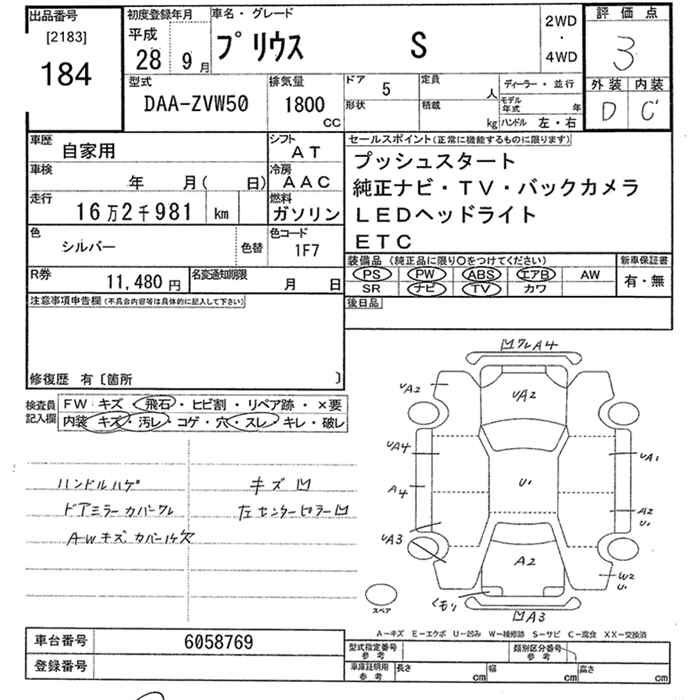 出品番号
[2183]
184
初度登録年月
平成
28 9 月
車名・グレード
プリウス S
2WD
・
4WD
評価点
3
外装 内装
D C
型式
DAA-ZVW50
排気量
1800
CC
ドア 5
形状
定員 人
積載 kg
ディーラー・並行
モデル年式 年
ハンドル 左・右
車歴 自家用
シフト AT
車検 年 月( 日)
冷房 AAC
走行 16万2千981 km
燃料 ガソリン
色 シルバー 色替
色コード 1F7
R券 11,480円
名変通知期限 月 日
セールスポイント(正常に機能するものに限ります)
プッシュスタート
純正ナビ・TV・バックカメラ
LEDヘッドライト
ETC
装備品 (純正品に限り○をつけてください)
PS PW ABS エアB AW
SR ナビ TV カワ
新車保証書
有・無
後日品
注意事項申告欄(不具合内容等は具体的に記入して下さい)
修復歴 有〔箇所 〕
検査員記入欄
FW キズ・飛石・ヒビ割・リペア跡・×要
内装 キズ・汚レ・コゲ・穴・スレ・キレ・破レ
ハンドルハゲ
ドアミラーカバーワレ
AWキズ カバー1ケ欠
キズ凹
左センターピラー凹
凹ワレA4
UA2
UA2
UA4
UA1
A4
U1
A2
U1
UA3
A2
W2
U1
くもり
凹A3
スペア
A-キズ E-エクボ U-凹み W-補修跡 S-サビ C-腐食 XX-交換済
車台番号 6058769
登録番号
型式指定番号 参考
類別区分番号 参考
車庫証明用 参考
長さ cm
幅 cm
高さ cm